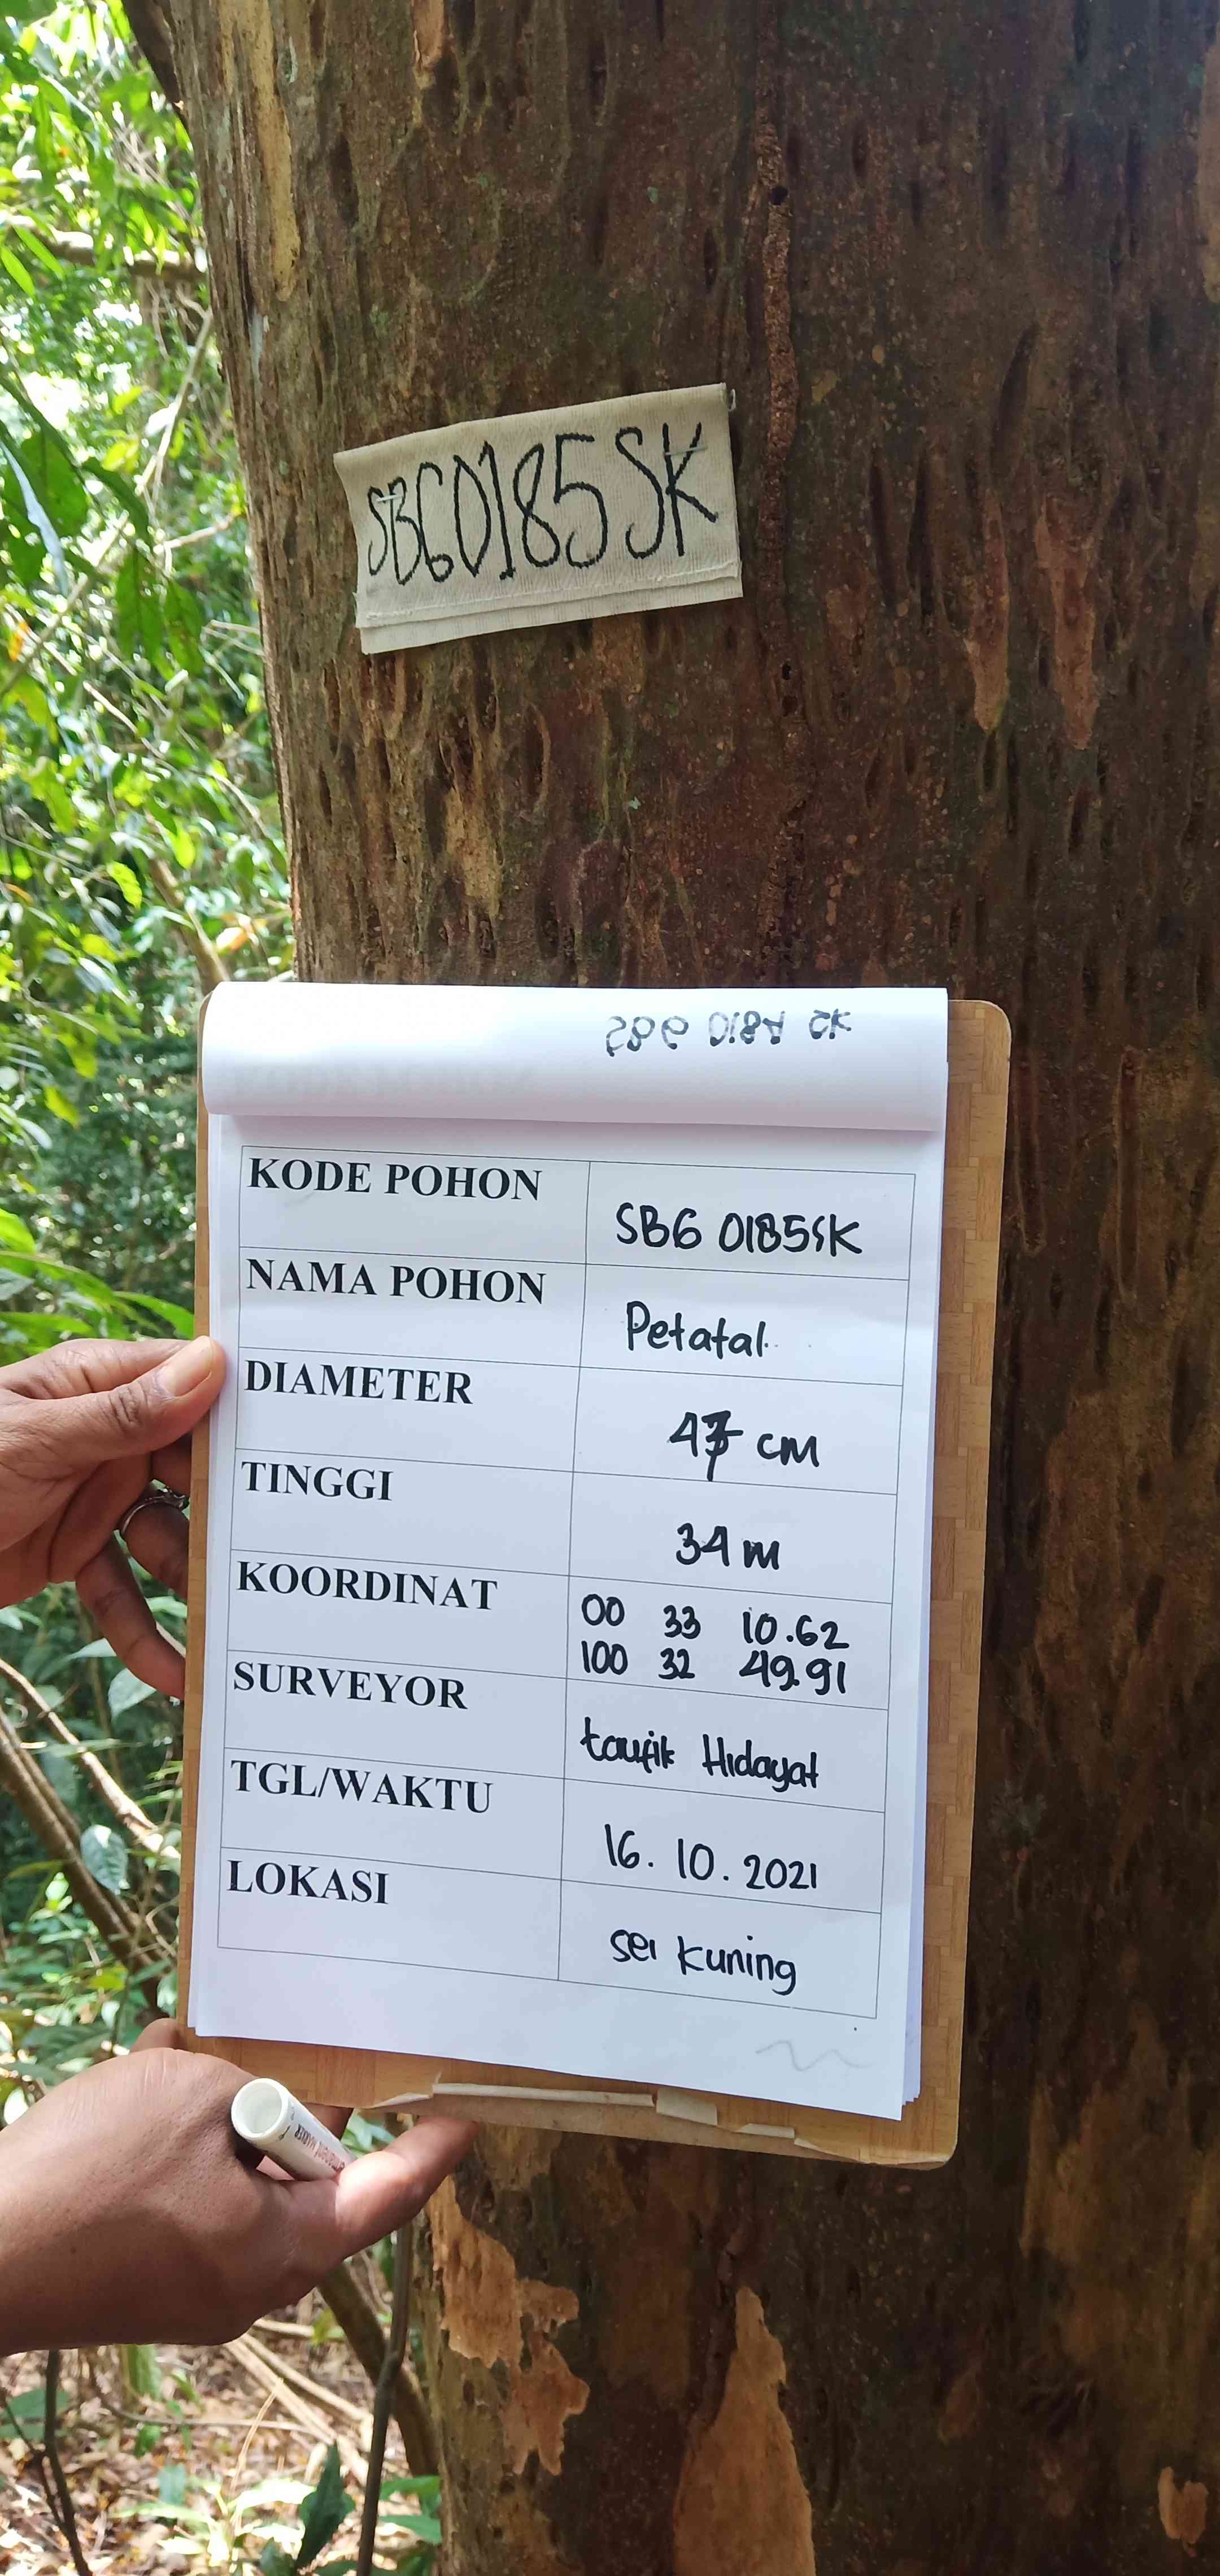 SBG0185SK
SBG 0184 SK
KODE POHON
SBG 0185SK
NAMA POHON
Petatal
DIAMETER
47 cm
TINGGI
34 m
KOORDINAT
00 33 10.62
100 32 49.91
SURVEYOR
taufik Hidayat
TGL/WAKTU
16. 10. 2021
LOKASI
sei kuning